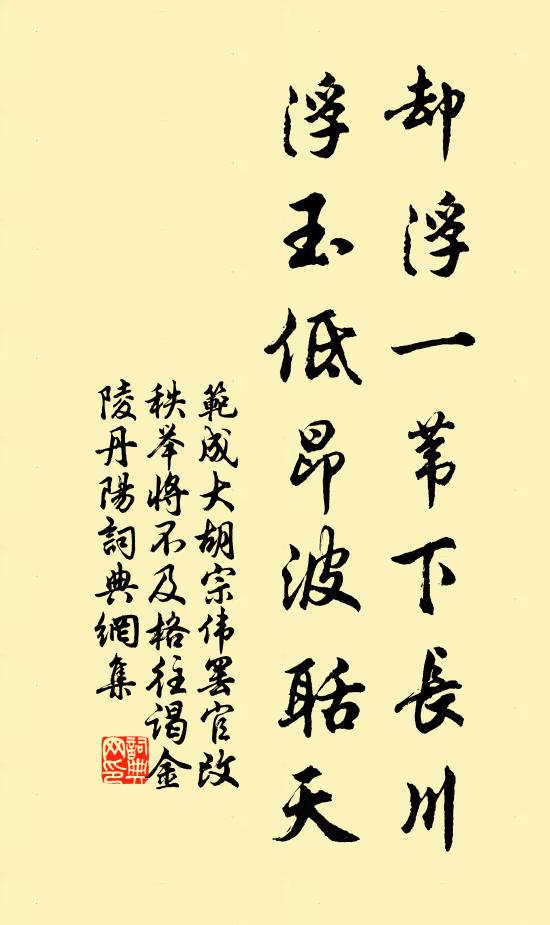 却浮一苇下長川
浮玉低昂波聒天
範成大胡宗伟罢官改
秩举将不及格往謁金
陵丹陽詞典網集
詞典
网印